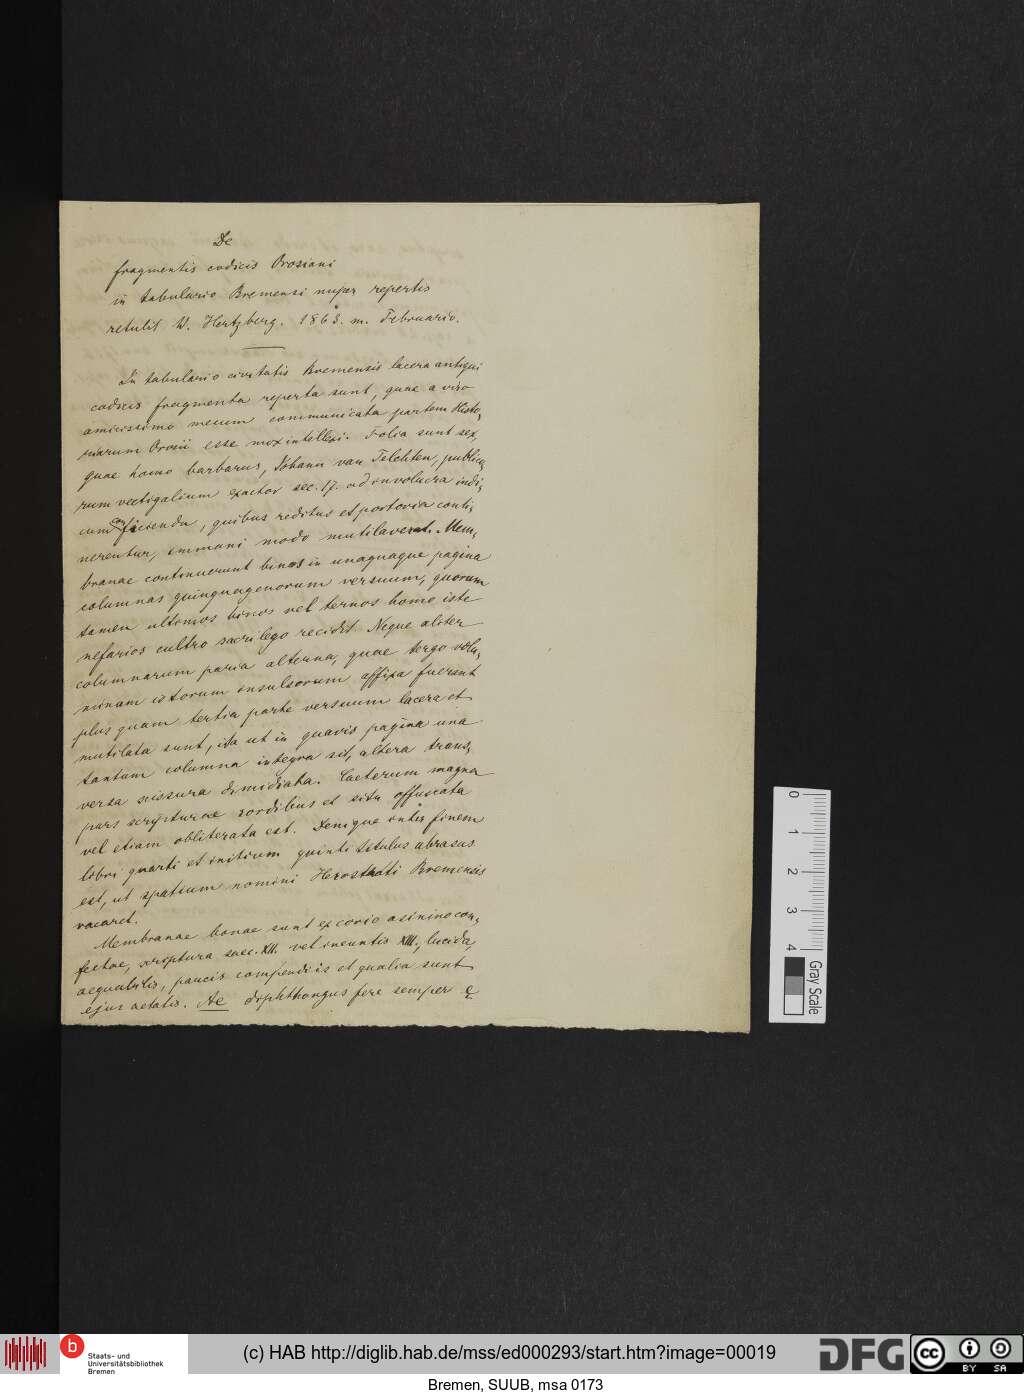 De
fragmentis codicis Orosiani
in tabulario Bremensi nuper repertis
retulit W. Hertzberg. 1863. m. Februario.
In tabulario civitatis Bremensis lacera antiqui
codicis fragmenta reperta sunt, quae a viro
amicissimo mecum communicata partem Histo-
riarum Orosii esse mox intellexi. Folia sunt sex,
quae homo barbarus, Johann van Telchten, publico-
rum vectigalium exactor sec. 17. ad involucra indi-
cum conficienda, quibus reditus et portoria conti-
nerentur, immani modo mutilaverat. Mem-
branae continuerunt binas in unaquaque pagina
columnas quinquagenorum versuum, quorum
tamen ultimos binos vel ternos homo iste
nefarios cultro sacrilego recidit. Neque aliter
columnarum paria alterna, quae tergo volu-
minum istorum insulsorum affixa fuerunt
plus quam tertia parte versuum lacera et
mutilata sunt, ita ut in quavis pagina una
tantum columna integra sit, altera trans-
versa scissura dimidiata. Caeterum magna
pars scripturae sordibus et situ offuscata
vel etiam obliterata est. Denique inter finem
libri quarti et initium quinti titulus abrasus
est, ut spatium nomini Herostrati Bremensis
vacaret.
Membranae bonae sunt ex corio asinino con-
fectae, scriptura saec. XII. vel ineuntis XIII., lucida,
aequabilis, paucis compendiis et qualia sunt
ejus aetatis. Ae diphthongus fere semper ę
0 1 2 3 4
Gray Scale
b Staats- und
Universitätsbibliothek
Bremen
(c) HAB http://diglib.hab.de/mss/ed000293/start.htm?image=00019
DFG
cc BY SA
Bremen, SUUB, msa 0173